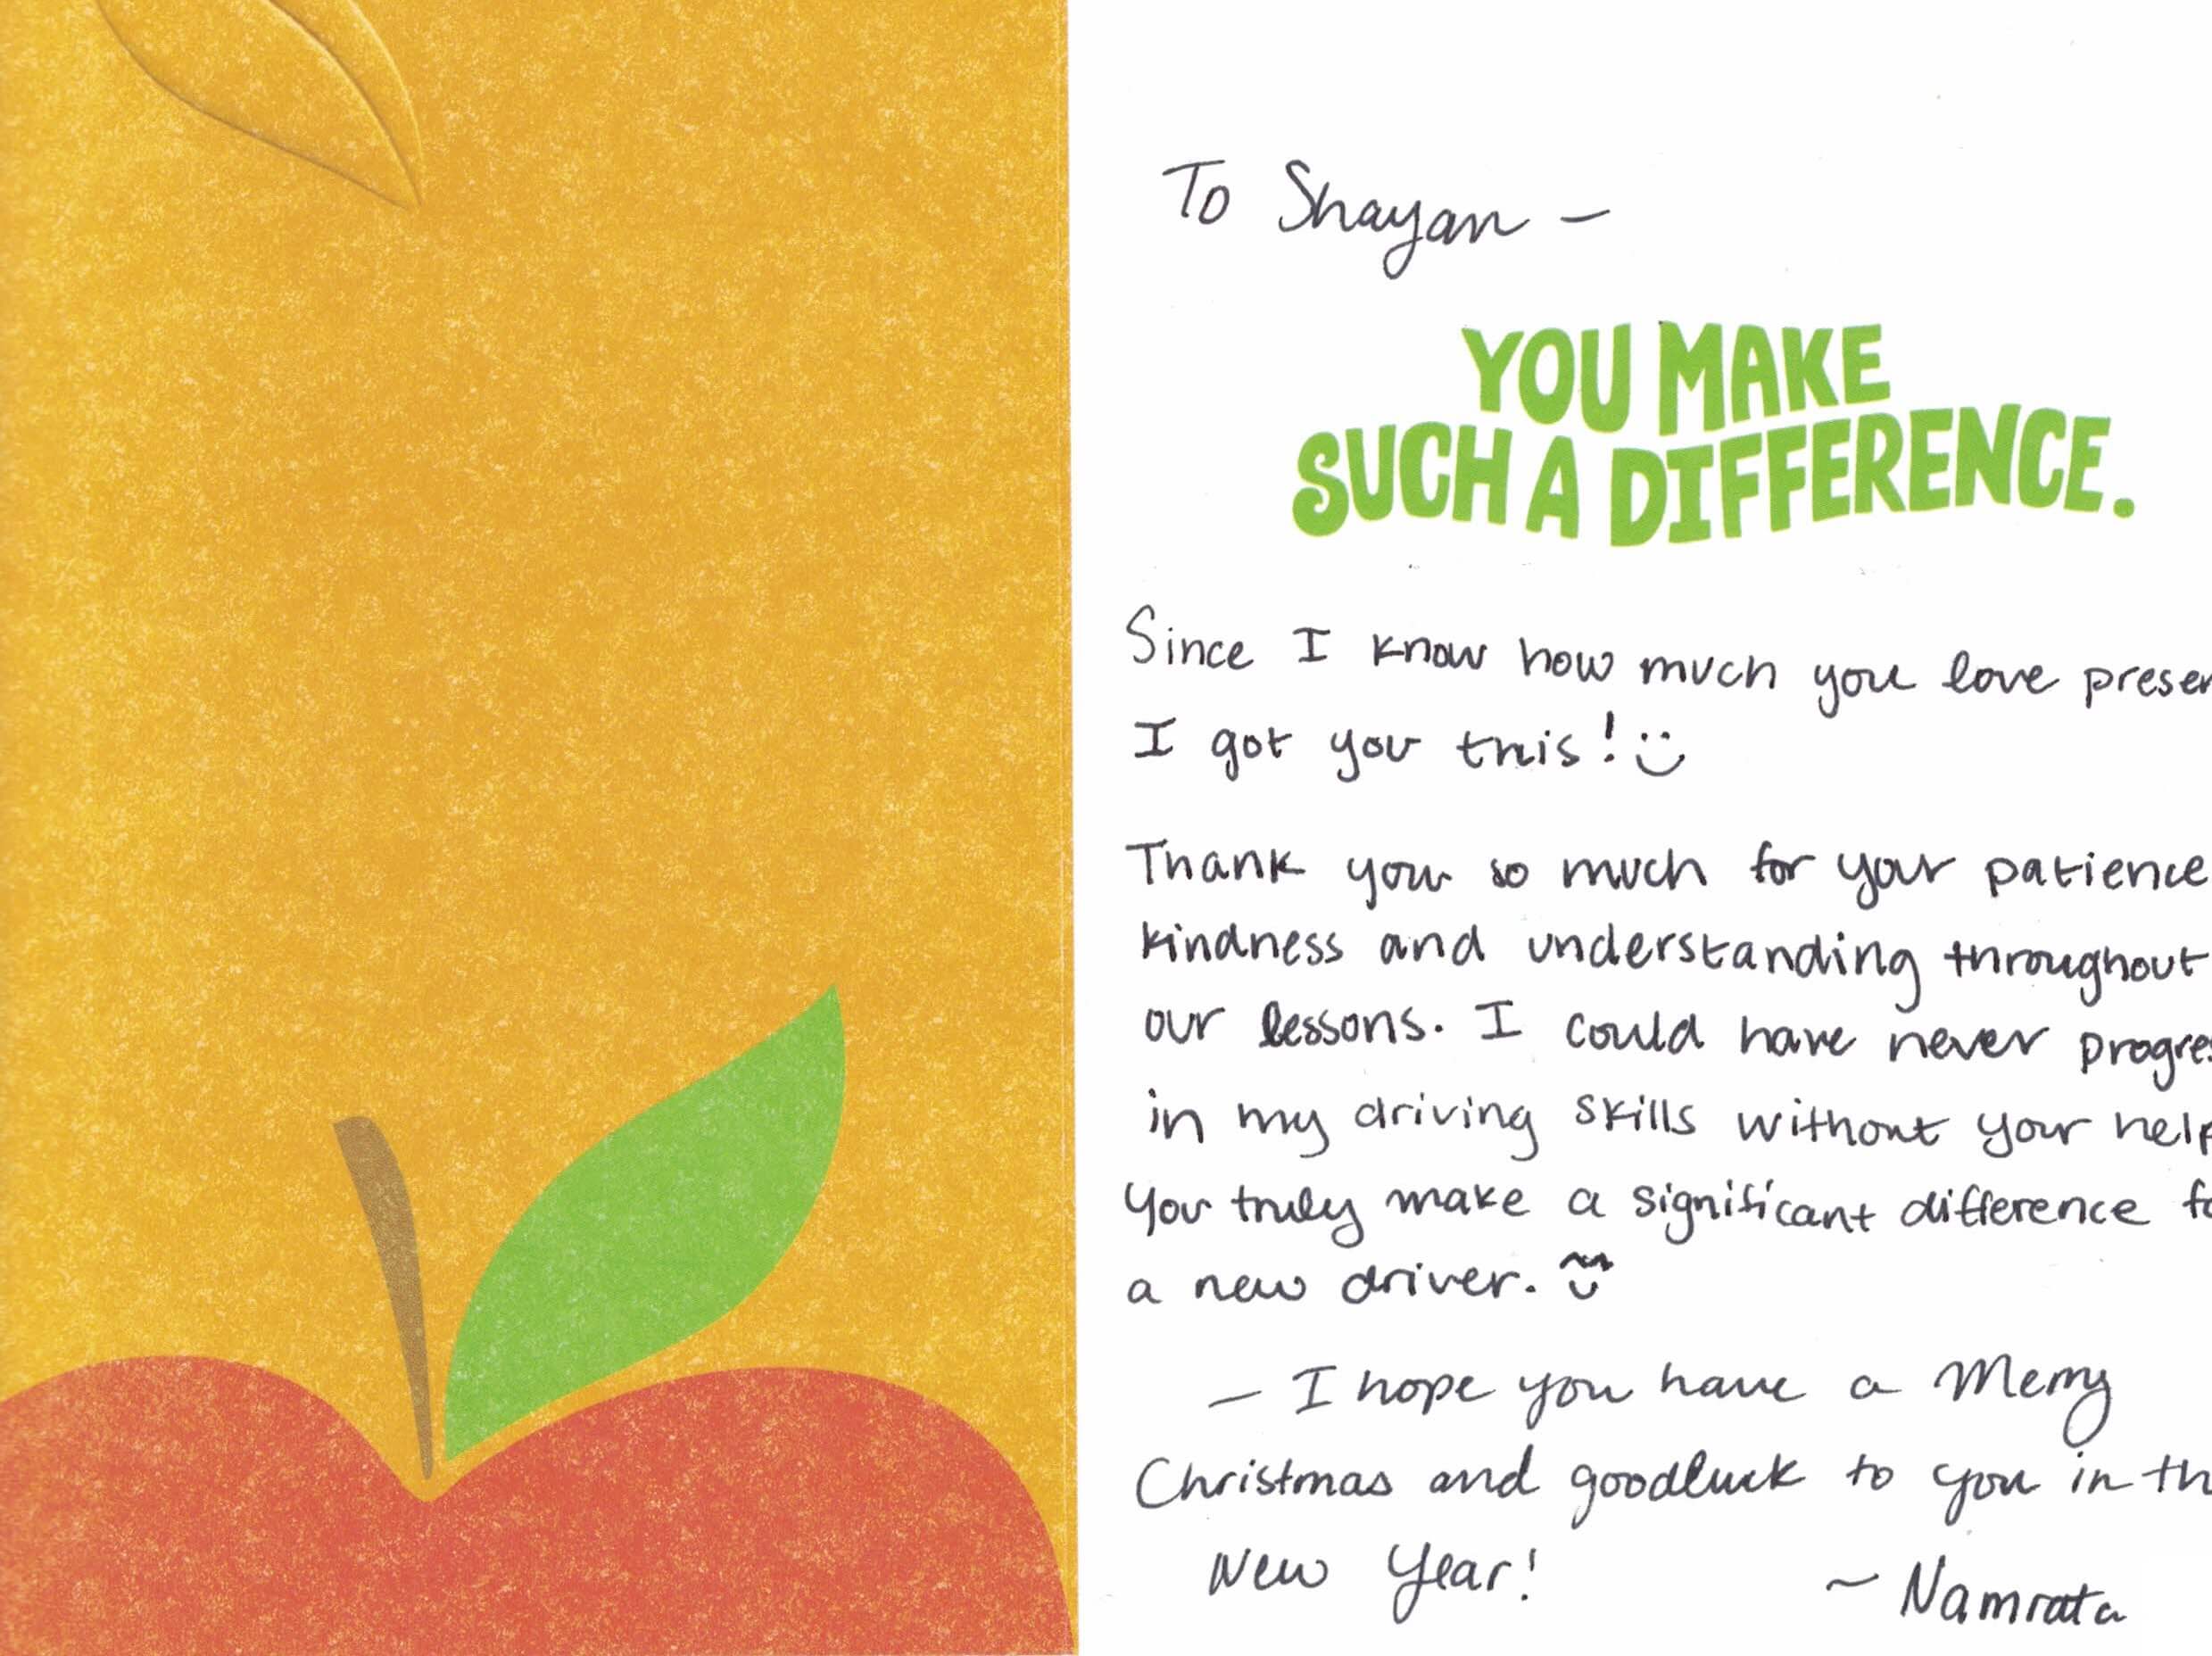 To Shayan –
YOU MAKE
SUCH A DIFFERENCE.
Since I know how much you love presen
I got you this! :)
Thank you so much for your patience
kindness and understanding throughout
our lessons. I could have never progres
in my driving skills without your help
You truly make a significant difference fo
a new driver.
– I hope you have a Merry
Christmas and goodluck to you in th
New Year!
~ Namrata